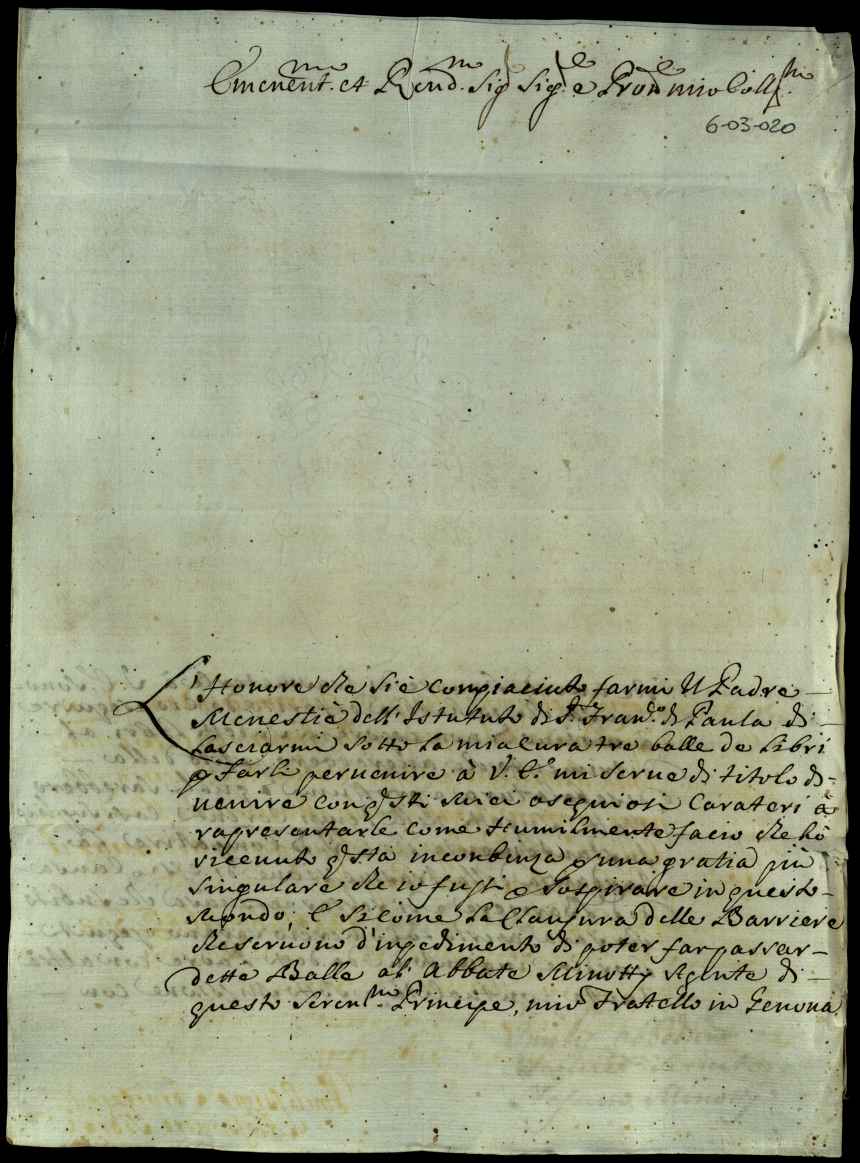 Eminent.mo et Rend.mo Sig.e Sig.e e Pron.e mio Coll.mo
6-03-020
L'Honore che si è compiaciuto farmi Il Padre
Menestiè dell'Istututo di S. Fran.co di Paula di
Lasciarmi sotto la mia cura tre balle de Libri
p farli peruenire à V. E. mi serue di titolo di
uenire con qsti miei osequiosi Carateri à
rapresentarle come Humilmente facio che hò
riceuuto qsta inconbinza p una gratia più
singulare che io fussi p sospiraire in questo
Mondo, E sicome La Clausura delle Barriere
che seruono d'inpedimento di poter far passar
dette Balle al' Abbate Minotty Agente di
questo Seren.mo Principe, mio Fratello in Genoua